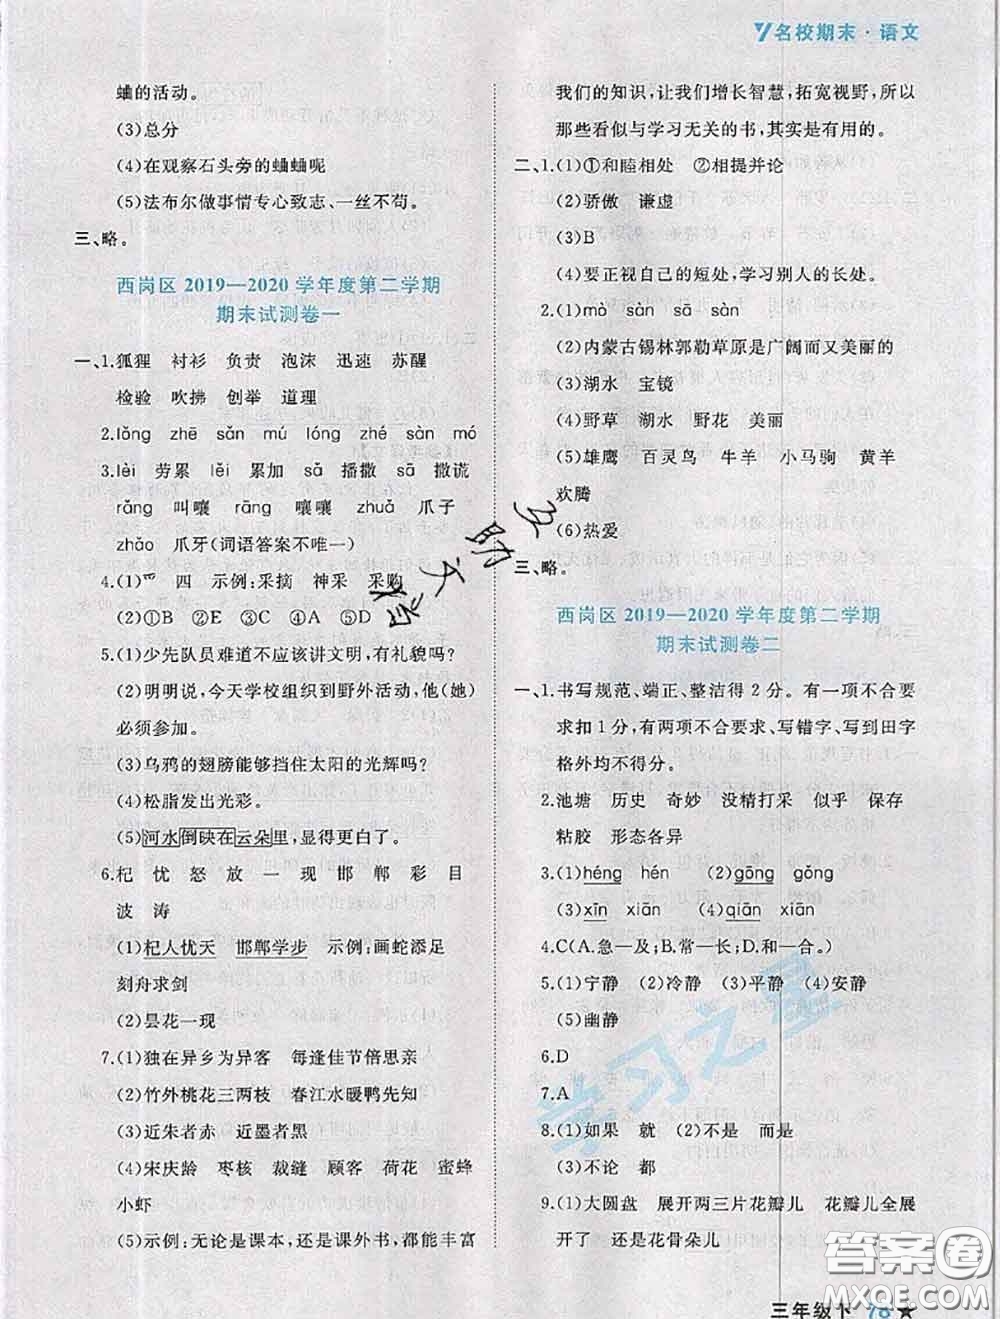 名校期末·语文
蛐的活动。
(3)总分
(4)在观察石头旁的蛐蛐呢
(5)法布尔做事情专心致志、一丝不苟。
三、略。
西岗区 2019—2020 学年度第二学期
期末试测卷一
一、1.狐狸 衬衫 负责 泡沫 迅速 苏醒
检验 吹拂 创举 道理
2.lǒng zhē sǎn mú lóng zhé sàn mó
3.lèi 劳累 lěi 累加 sǎ 播撒 sā 撒谎
rǎng 叫嚷 rāng 嚷嚷 zhuǎ 爪子
zhǎo 爪牙(词语答案不唯一)
4.(1)爫 四 示例:采摘 神采 采购
(2)①B ②E ③C ④A ⑤D
5.(1)少先队员难道不应该讲文明,有礼貌吗?
(2)明明说,今天学校组织到野外活动,他(她)
必须参加。
(3)乌鸦的翅膀能够挡住太阳的光辉吗?
(4)松脂发出光彩。
(5)河水倒映在云朵里,显得更白了。
6.杞 忧 怒 放 一 现 邯 郸 彩 目
波 涛
(1)杞人忧天 邯郸学步 示例:画蛇添足
刻舟求剑
(2)昙花一现
7.(1)独在异乡为异客 每逢佳节倍思亲
(2)竹外桃花三两枝 春江水暖鸭先知
(3)近朱者赤 近墨者黑
(4)宋庆龄 枣核 裁缝 顾客 荷花 蜜蜂
小虾
(5)示例:无论是课本,还是课外书,都能丰富
我们的知识,让我们增长智慧,拓宽视野,所以
那些看似与学习无关的书,其实是有用的。
二、1.(1)①和睦相处 ②相提并论
(2)骄傲 谦虚
(3)B
(4)要正视自己的短处,学习别人的长处。
2.(1)mò sàn sā sàn
(2)内蒙古锡林郭勒草原是广阔而又美丽的
(3)湖水 宝镜
(4)野草 湖水 野花 美丽
(5)雄鹰 百灵鸟 牛羊 小马驹 黄羊
欢腾
(6)热爱
三、略。
西岗区 2019—2020 学年度第二学期
期末试测卷二
一、1.书写规范、端正、整洁得 2 分。有一项不合要
求扣 1 分,有两项不合要求、写错字、写到田字
格外均不得分。
2.池塘 历史 奇妙 没精打采 似乎 保存
粘胶 形态各异
3.(1)héng hén (2)gōng góng
(3)xīn xīn (4)qiān xiān
4.C(A.急—及;B.常—长;D.和—合。)
5.(1)宁静 (2)冷静 (3)平静 (4)安静
(5)幽静
6.D
7.A
8.(1)如果 就 (2)不是 而是
(3)不论 都
9.(1)大圆盘 展开两三片花瓣儿 花瓣儿全展
开了 还是花骨朵儿
三年级下 78★
学习之星
答案圈